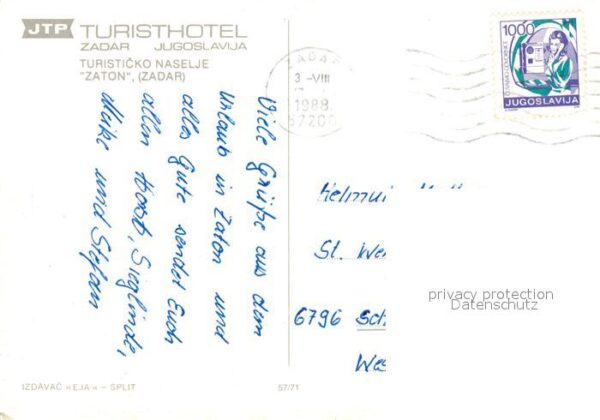 JTP TURISTHOTEL
ZADAR JUGOSLAVIJA
TURISTIČKO NASELJE
"ZATON", (ZADAR)
Viele Grüße aus dem
Urlaub in Zaton und
alles Gute sendet Euch
allen Horst, Sieglinde,
Maike und Stefan
ZADAR
3 -VIII
1988
57200
1000
JUGOSLAVIJA
Helmut
St. We
6796 Sch
Wes
privacy protection
Datenschutz
IZDAVAČ »EJA« – SPLIT
57/71